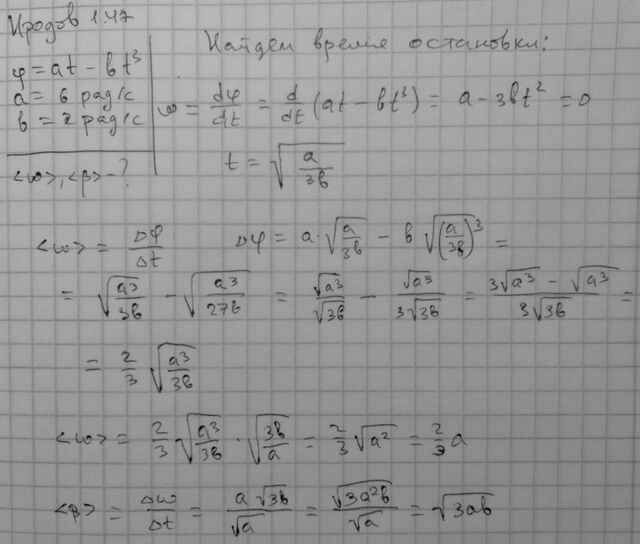 Иродов 1.47
φ = at − bt³
a = 6 рад/с
b = 2 рад/с
<ω>, <β> - ?
Найдем время остановки:
ω = dφ/dt = d/dt (at − bt³) = a − 3bt² = 0
t = √(a/3b)
<ω> = Δφ/Δt   Δφ = a·√(a/3b) − b√(a/3b)³ =
= √(a³/3b) − √(a³/27b) = √a³/√3b − √a³/3√3b = (3√a³ − √a³)/3√3b =
= 2/3 √(a³/3b)
<ω> = 2/3 √(a³/3b) · √(3b/a) = 2/3 √a² = 2/3 a
<β> = Δω/Δt = a√3b/√a = √3a²b/√a = √3ab